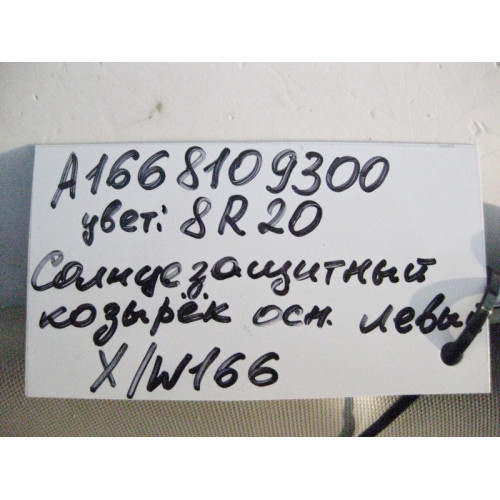 A1668109300
цвет: 8R20
Солнцезащитный
козырёк осн. левы
X/W166